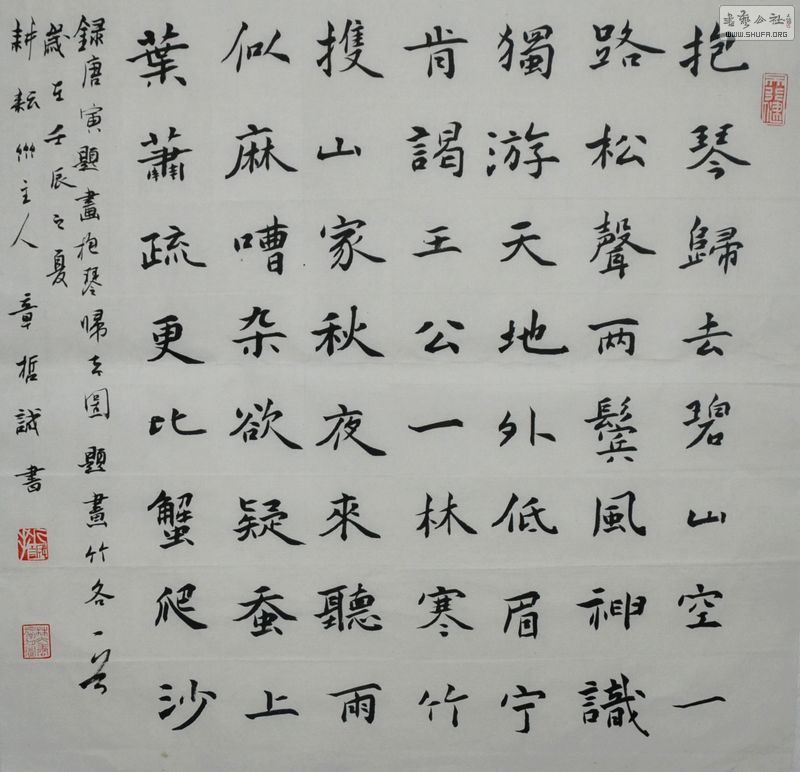 抱琴歸去碧山空一
路松聲两鬢風神識
獨游天地外低眉宁
肯謁王公一林寒竹
擭山家秋夜來聽雨
似麻嘈杂欲疑蚕上
葉蕭疏更比蟹爬沙
録唐寅題畫抱琴帰去圖題畫竹各一首
歲在壬辰之夏
耕耘主人 章哲誠書
書藝公社
WWW.SHUFA.ORG